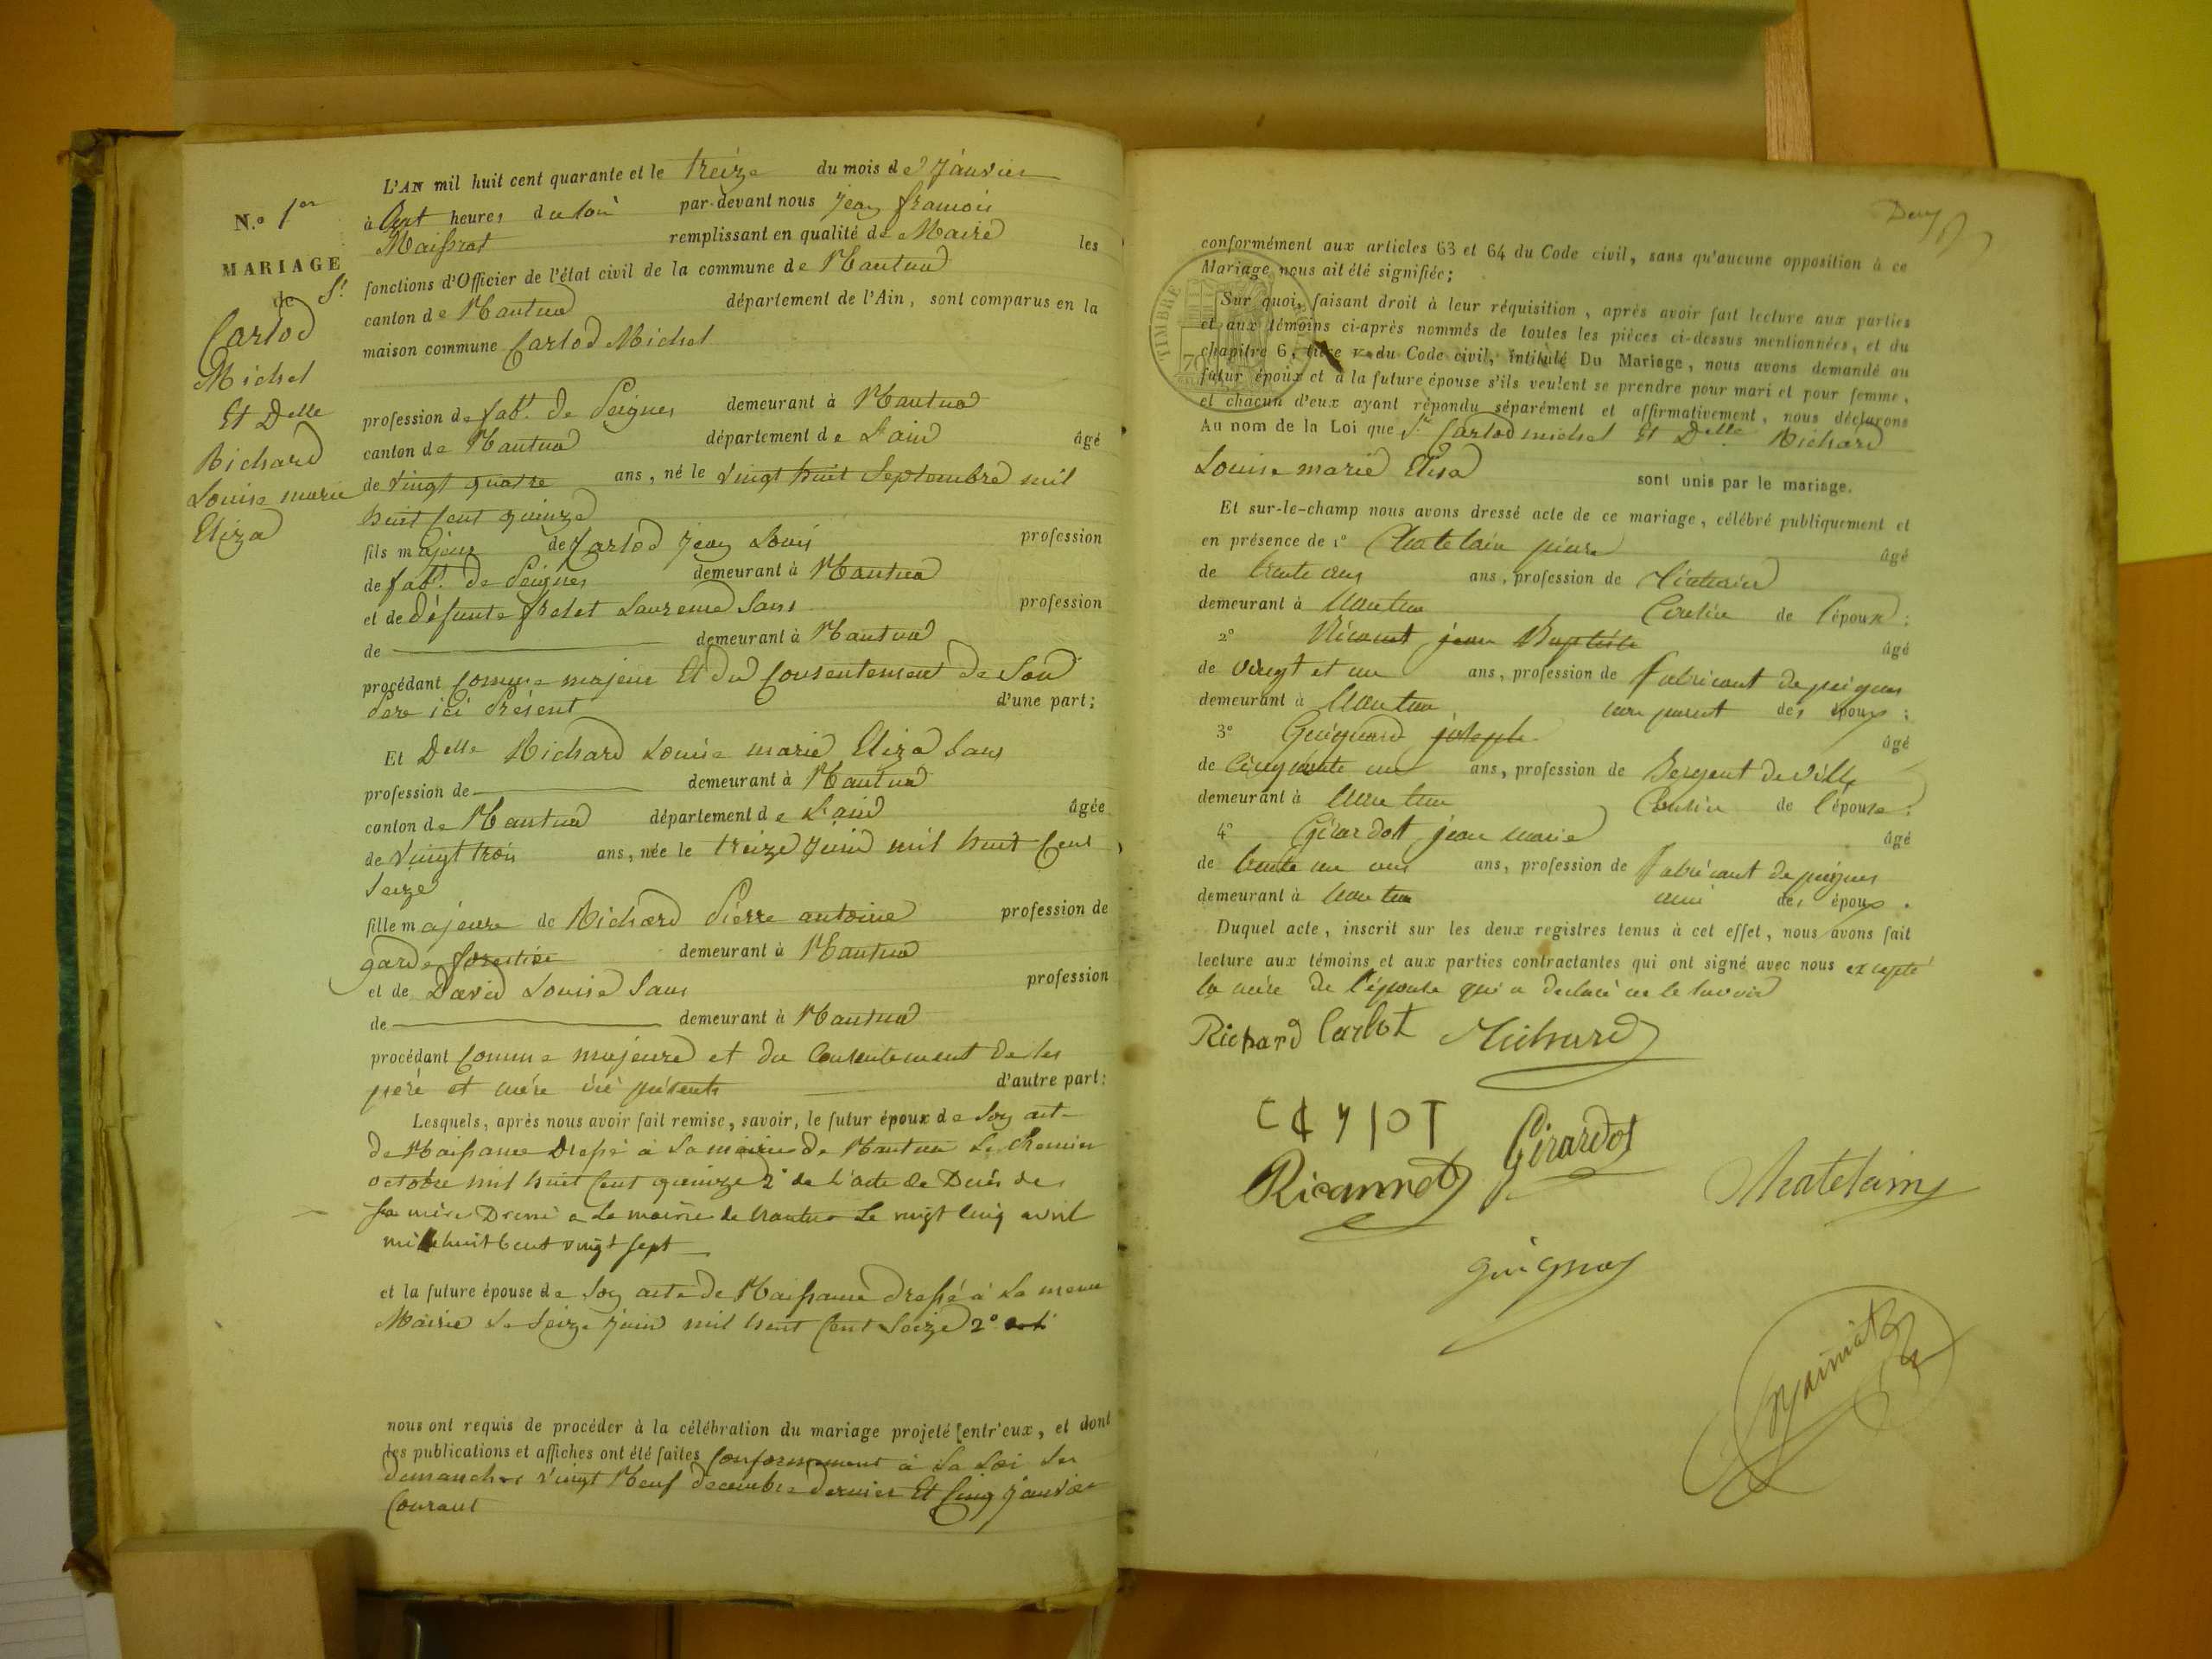 N.o 1er
MARIAGE
de Sr
Carlod
Michel
Et Delle
Richard
Louise marie
Eliza
L'AN mil huit cent quarante et le treize du mois de Janvier
à heures du soir par-devant nous jean francois
remplissant en qualité de Maire les
fonctions d'Officier de l'état civil de la commune de Nantua
canton de Nantua département de l'Ain, sont comparus en la
maison commune Carlod Michel
profession de fabt. de Peignes demeurant à Nantua
canton de Nantua département de L'ain âgé
de vingt quatre ans, né le vingt huit Septembre mil
huit Cent quinze
fils majeur de Carlod jean Louis profession
de fabt. de Peignes demeurant à Nantua
et de défunte Laurence Sans profession
de demeurant à Nantua
procédant Comme majeur Et du Consentement de Son
Pere ici Présent d'une part;
Et Delle Richard Louise marie Eliza Sans
profession de demeurant à Nantua
canton de Nantua département de L'ain âgée
de vingt trois ans, née le treize juin mil huit Cent
Seize
fille majeure de Richard Pierre antoine profession de
garde forestier demeurant à Nantua
et de David Louise Sans profession
de demeurant à Nantua
procédant Comme majeure et du Consentement de ses
pere et mére ici présents d'autre part:
Lesquels, après nous avoir fait remise, savoir, le futur époux de Son act
de Naissance Dressé à La mairie de Nantua Le
octobre mil huit Cent quinze 2° de l'acte de Décès de
sa mère Dressé a La mairie de Nantua Le vingt Cinq avril
mil huit Cent vingt sept
et la future épouse de Son acte de Naissance dressé à La meme
Mairie Le Seize juin mil huit Cent Seize 2°
nous ont requis de procéder à la célébration du mariage projeté entr'eux, et dont
les publications et affiches ont été faites Conformement à La Loi Les
dimanches vingt Neuf decembre dernier Et Cinq janvier
Courant
Deux
conformément aux articles 63 et 64 du Code civil, sans qu'aucune opposition à ce
Mariage nous ait été signifiée;
TIMBRE
70
Sur quoi, faisant droit à leur réquisition, après avoir fait lecture aux parties
et aux témoins ci-après nommés de toutes les pièces ci-dessus mentionnées, et du
chapitre 6, titre v du Code civil, intitulé Du Mariage, nous avons demandé au
futur époux et à la future épouse s'ils veulent se prendre pour mari et pour femme,
et chacun d'eux ayant répondu séparément et affirmativement, nous déclarons
Au nom de la Loi que Sr Carlod michel Et Delle Richard
Louise marie Elisa sont unis par le mariage.
Et sur-le-champ nous avons dressé acte de ce mariage, célébré publiquement et
en présence de 1° Chatelain pierre âgé
de trente ans, profession de
demeurant à Nantua Cousin de l'époux;
2° jean Baptiste âgé
de vingt et un ans, profession de fabricant de peignes
demeurant à Nantua parent des époux;
3° joseph âgé
de Cinquante un ans, profession de Sergent de ville
demeurant à Nantua Cousin de l'épouse;
4° Girardot jean marie âgé
de trente un ans ans, profession de Fabricant de peignes
demeurant à Nantua ami des époux.
Duquel acte, inscrit sur les deux registres tenus à cet effet, nous avons fait
lecture aux témoins et aux parties contractantes qui ont signé avec nous excepté
la mére de l'épouse qui a declaré ne le savoir
Richard Carlot Richard
Girardot
Chatelain